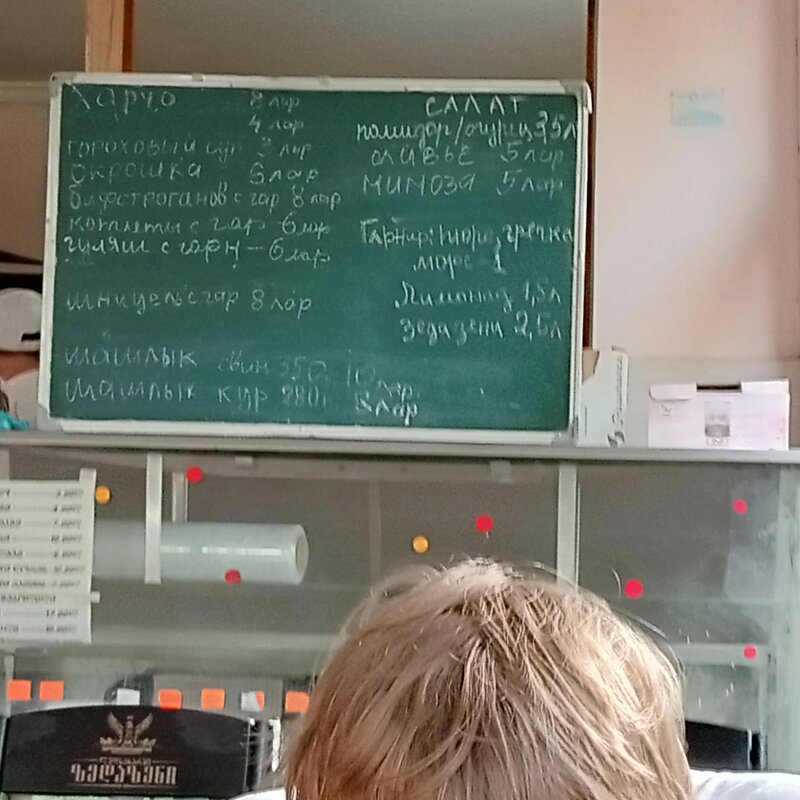 Харчо 8 лар
4 лар
гороховый суп 3 лар
окрошка 6 лар
бифстроганов с гар 8 лар
котлеты с гар 6 лар
гуляш с гарн - 6 лар
шницель с гар 8 лар
шашлык свин 350 10 лар
шашлык кур 280г 8 лар
САЛАТ
помидор/огурец 3,5л
оливье 5 лар
мимоза 5 лар
Гарнир: пюре, гречка
морс-1
Лимонад 1,5л
зедазени 2,5л
ზედაზენი